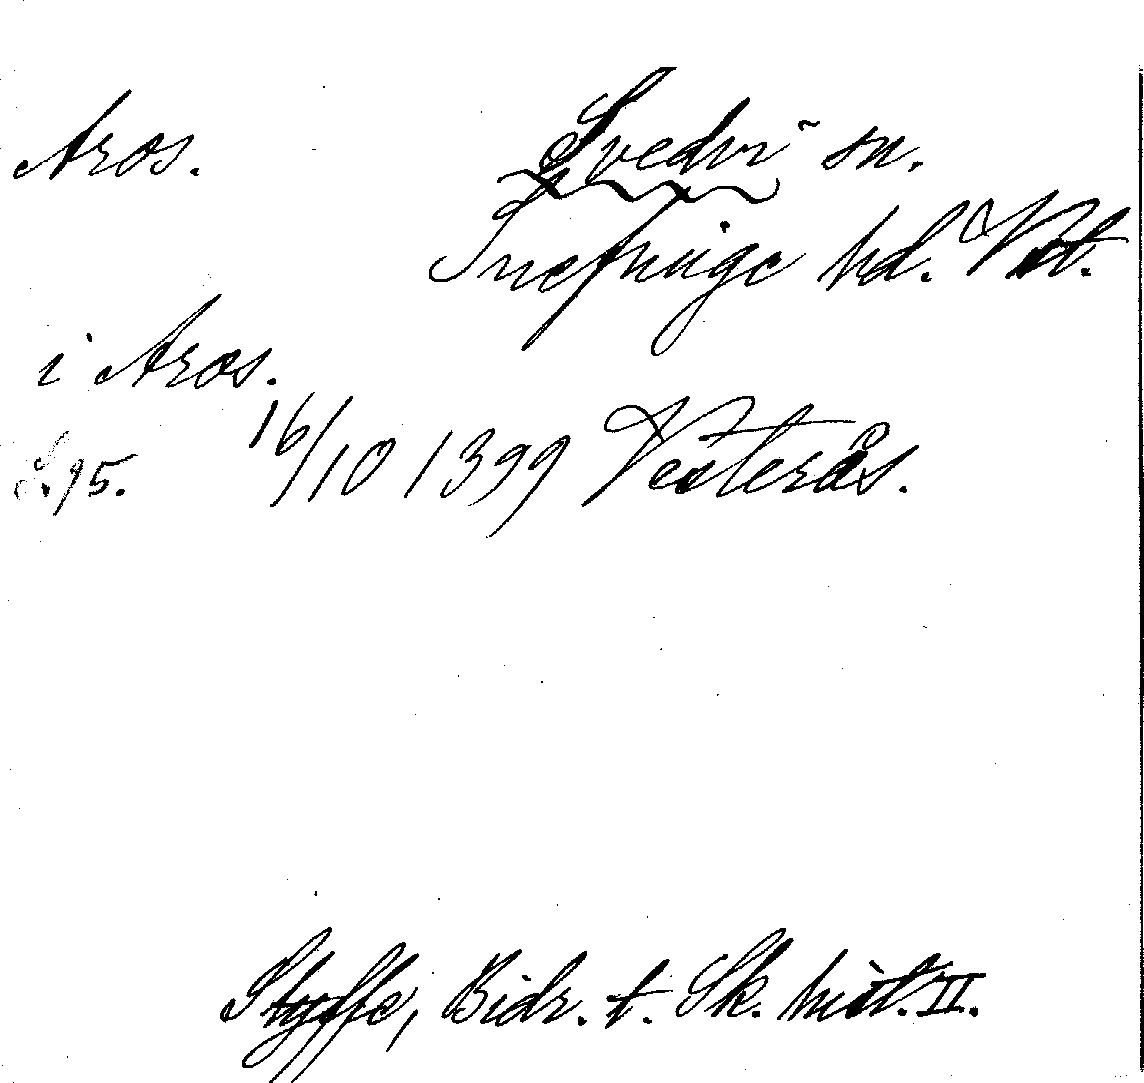 Aros. Svedvi sn.
Snefringe hd. Vstm.
i Aros.
S. 95. 16/10 1399 Vesterås.
Styffe, Bidr. t. Sk. hist. II.